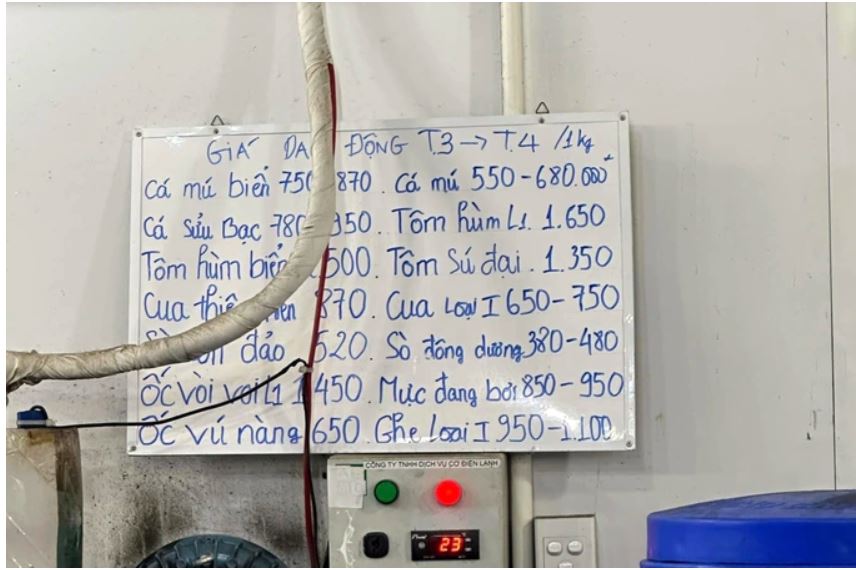 GIÁ DA ĐỘNG T.3 → T.4 /1kg
Cá mú biển 750 870. Cá mú 550-680.000đ
Cá Sửu Bạc 780 950. Tôm hùm L1. 1.650
Tôm hùm biển 500. Tôm Sú đại. 1.350
Cua 870. Cua Loại I 650-750
đảo 520. Sò đông dương 380-480
Ốc vòi voi L1 1.450. Mực đang bơi 850-950
Ốc vú nàng 650. Ghẹ Loại I 950-1.100
CÔNG TY TNHH DỊCH VỤ CƠ ĐIỆN LẠNH
23